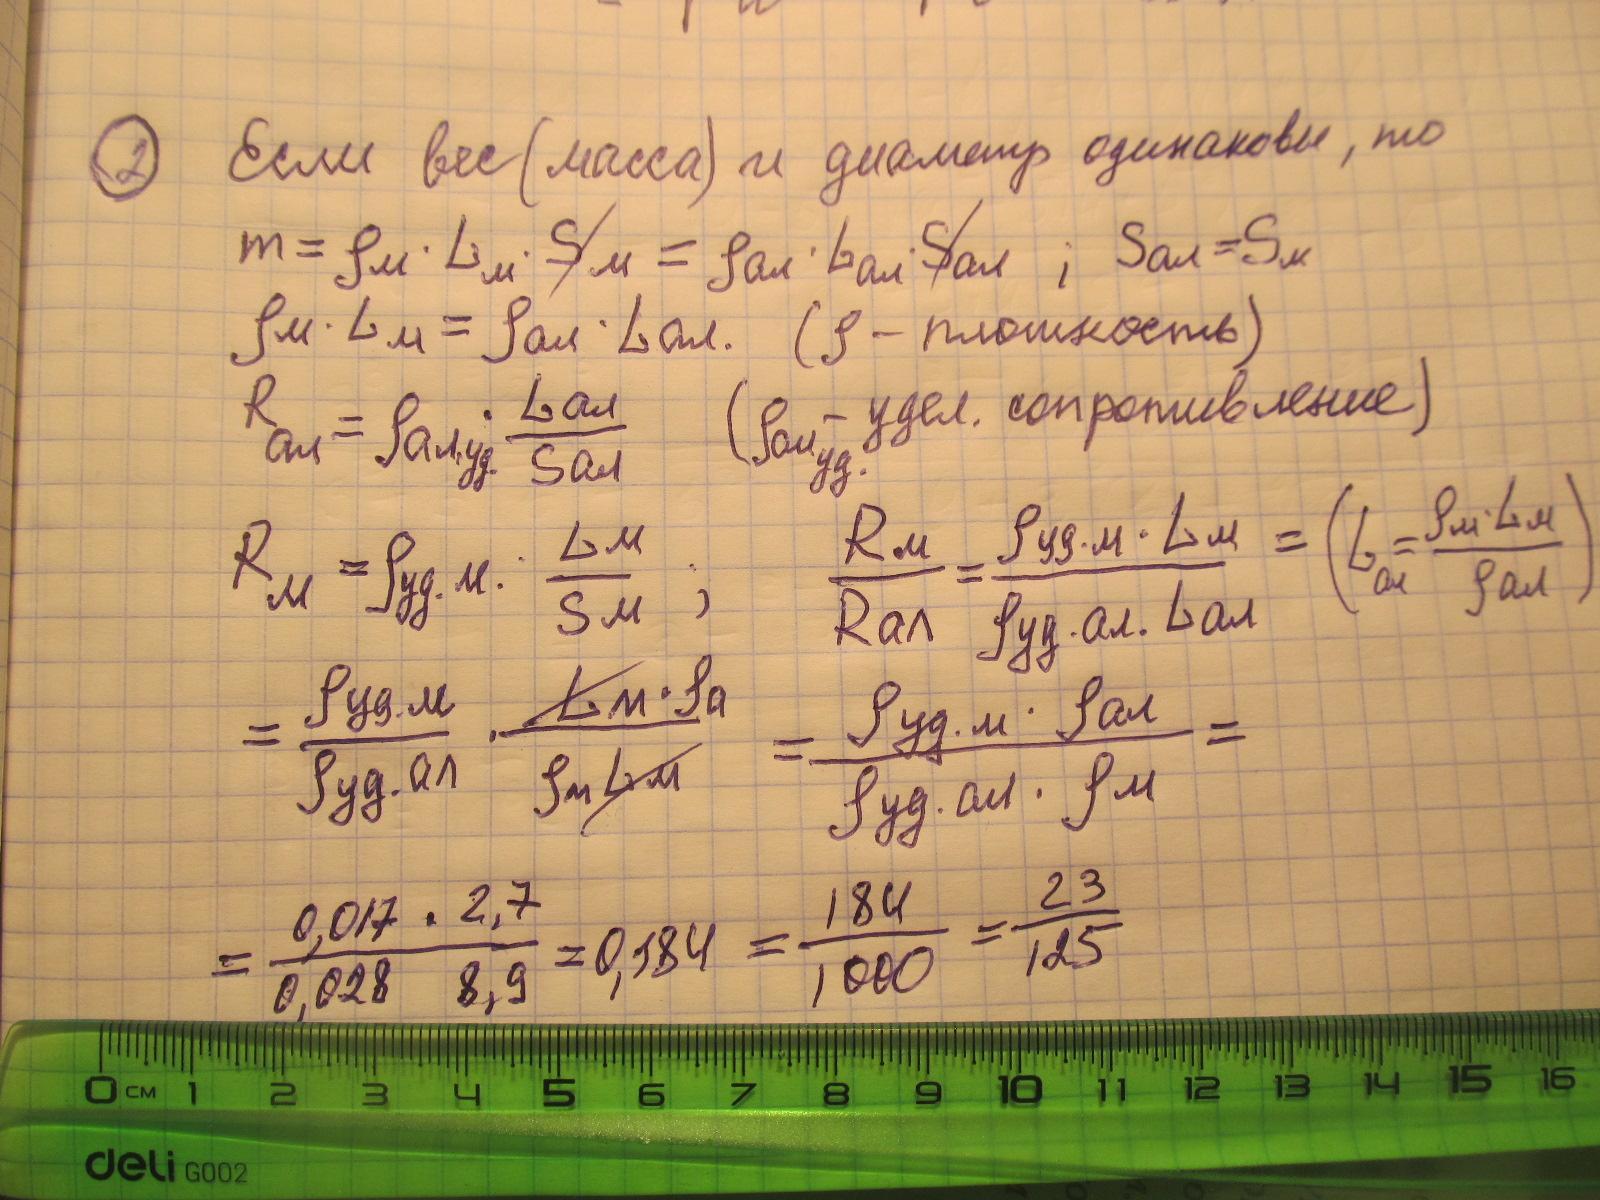 ② Если вес (масса) и диаметр одинаковы, то
m = ρм · Lм · Sм = ρал · Lал · Sал ; Sал = Sм
ρм · Lм = ρал · Lал. (ρ – плотность)
Rал = ρал.уд. · Lал / Sал (ρал уд. – удел. сопротивление)
Rм = ρуд.м. · Lм / Sм ; Rм / Rал = ρуд.м · Lм / ρуд.ал. Lал = (Lал = ρм · Lм / ρал)
= ρуд.м / ρуд.ал · Lм · ρа / ρм Lм = ρуд.м · ρал / ρуд.ал · ρм =
= 0,017 · 2,7 / 0,028 8,9 = 0,184 = 184 / 1000 = 23 / 125
0 см 1 2 3 4 5 6 7 8 9 10 11 12 13 14 15 16
deli G002